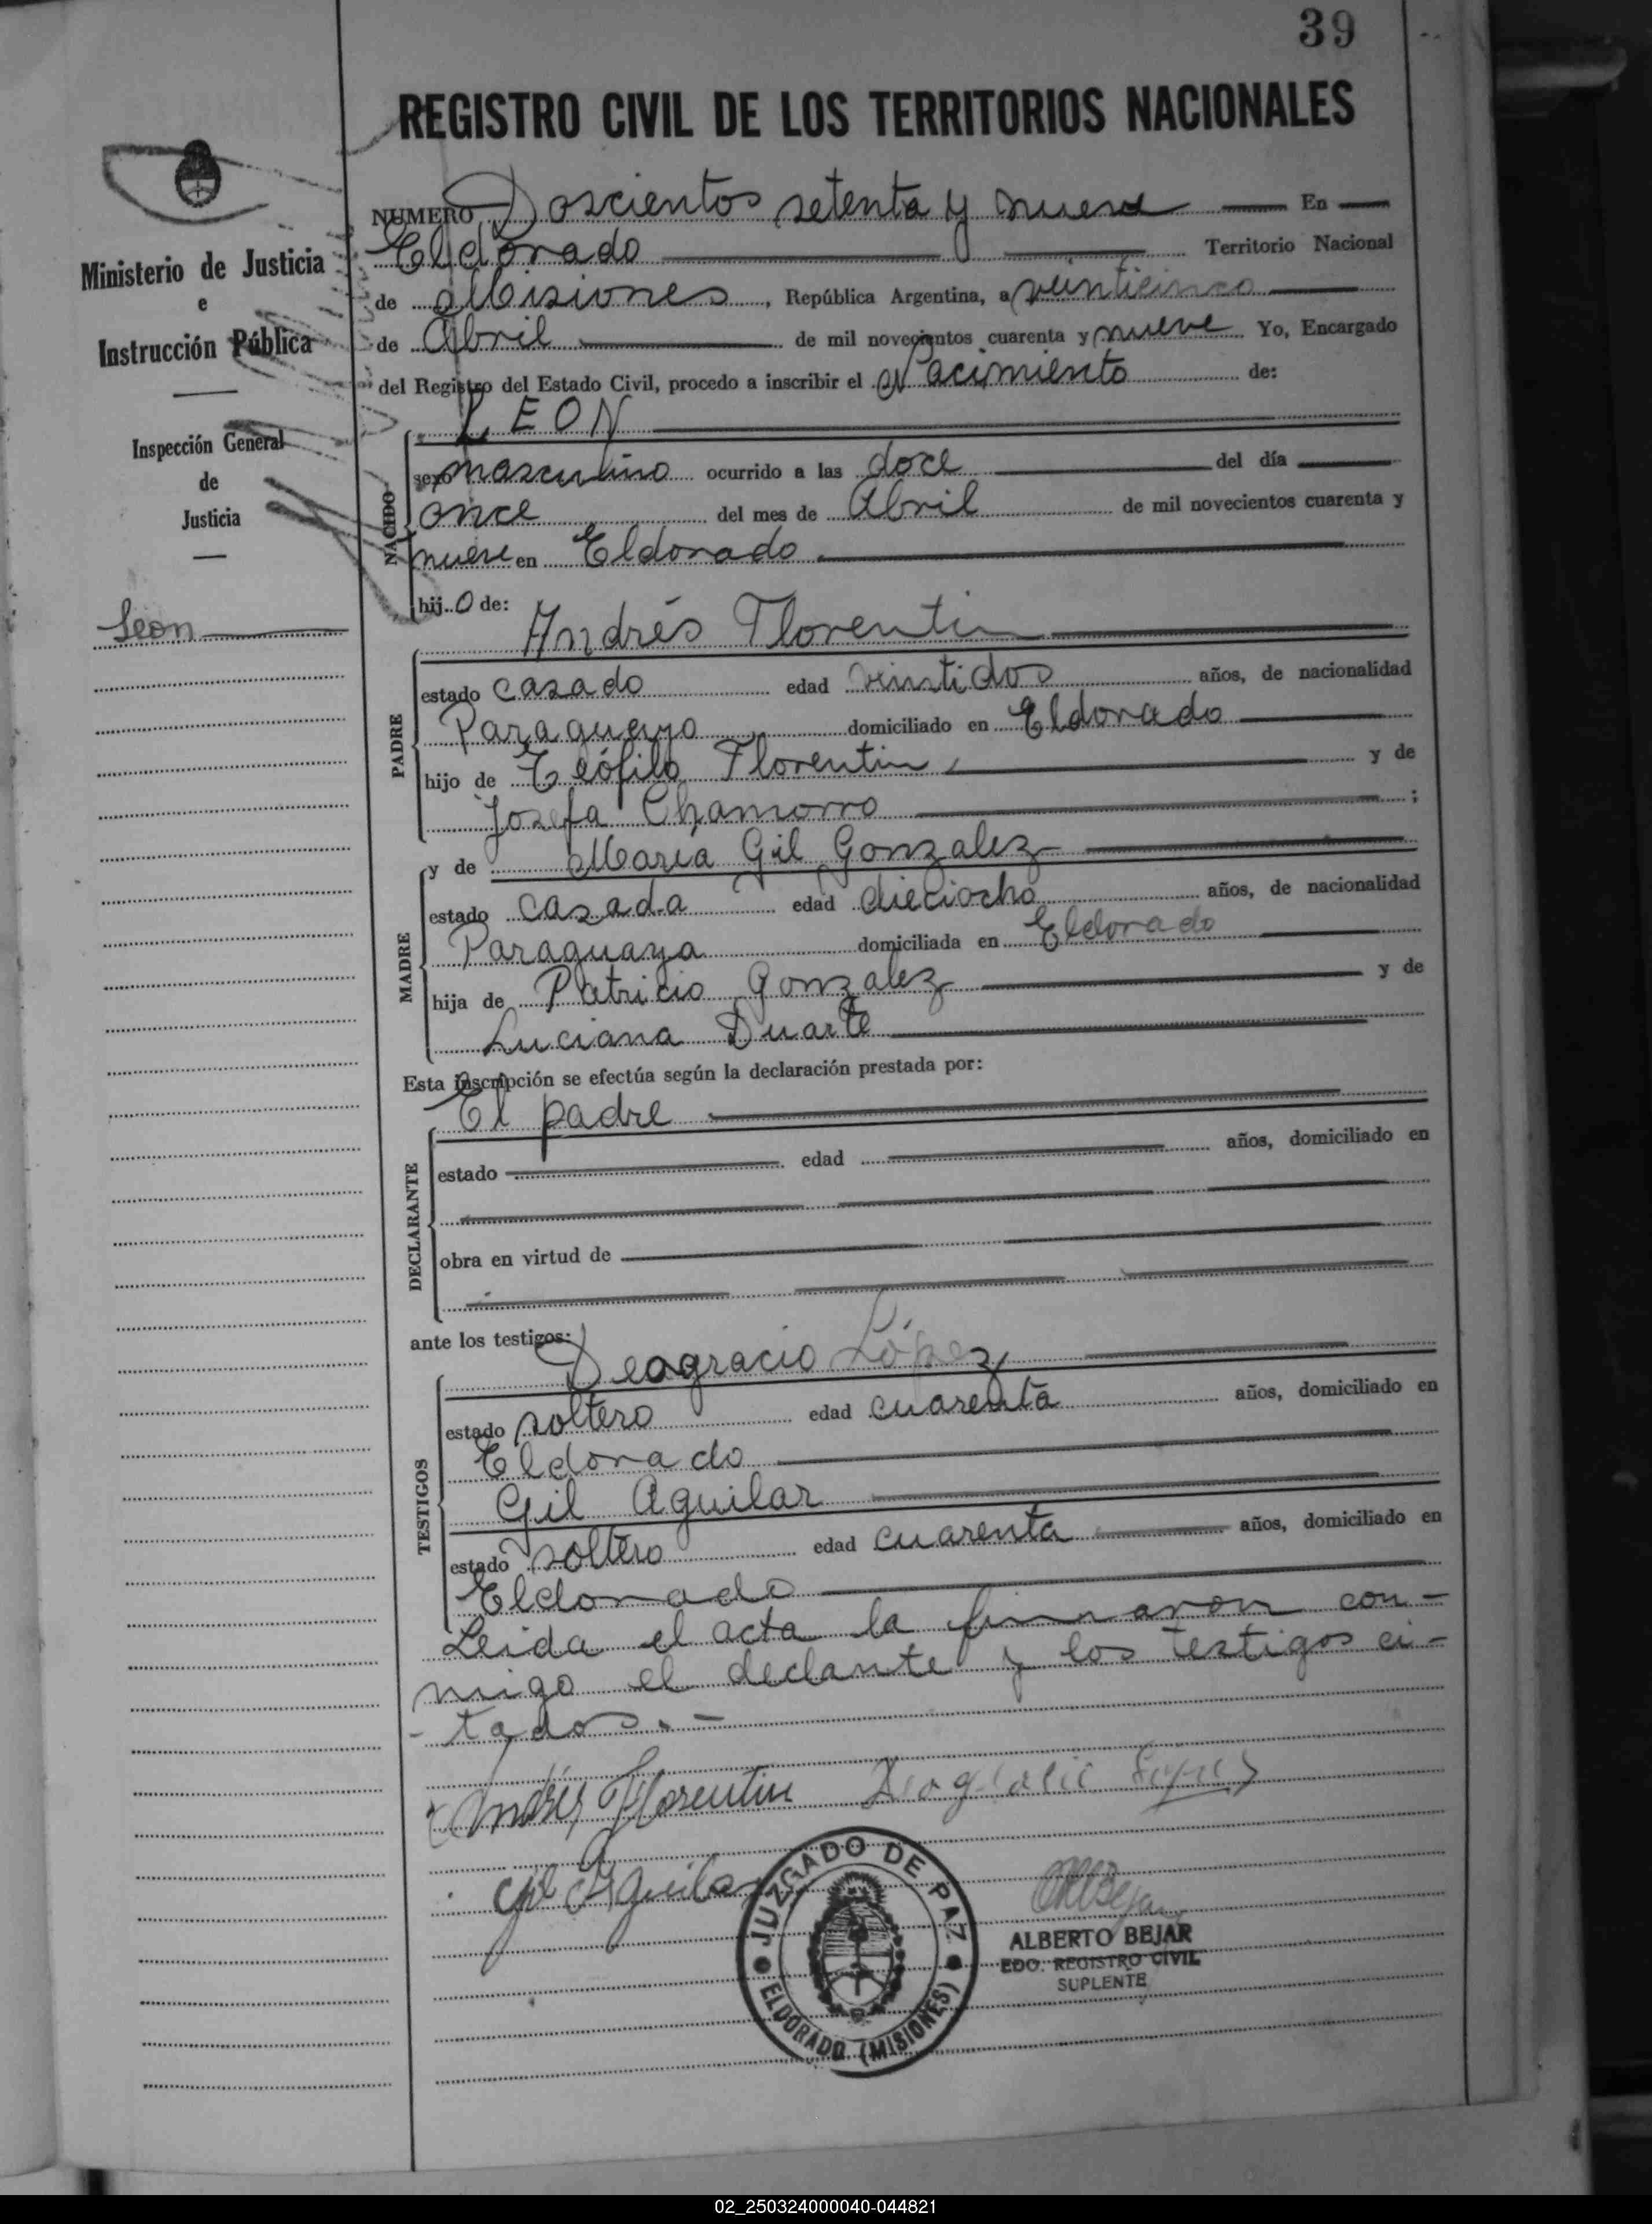 39
REGISTRO CIVIL DE LOS TERRITORIOS NACIONALES
Ministerio de Justicia
e
Instrucción Pública
Inspección General
de
Justicia
Leon
NUMERO Doscientos setenta y nueve En
Eldorado Territorio Nacional
de Misiones, República Argentina, a veinticinco
de Abril de mil novecientos cuarenta y nueve Yo, Encargado
del Registro del Estado Civil, procedo a inscribir el Nacimiento de:
LEON
NACIDO
sexo masculino ocurrido a las doce del día
once del mes de Abril de mil novecientos cuarenta y
nueve en Eldorado
hijo de:
Andrés Florentin
PADRE
estado casado edad veintidos años, de nacionalidad
Paraguayo domiciliado en Eldorado
hijo de Teófilo Florentin y de
Josefa Chamorro ;
y de María Gil Gonzalez
MADRE
estado casada edad dieciocho años, de nacionalidad
Paraguaya domiciliada en Eldorado
hija de Patricio Gonzalez y de
Luciana Duarte
Esta inscripción se efectúa según la declaración prestada por:
El padre
DECLARANTE
estado edad años, domiciliado en
obra en virtud de
ante los testigos:
Deogracio López
TESTIGOS
estado soltero edad cuarenta años, domiciliado en
Eldorado
Gil Aguilar
estado soltero edad cuarenta años, domiciliado en
Eldorado
Leida el acta la firmaron con-
migo el declante y los testigos ci-
-tados.-
Andrés Florentin Deogracio López
Gil Aguilar
JUZGADO DE PAZ
ELDORADO (MISIONES)
ALBERTO BEJAR
EDO. REGISTRO CIVIL
SUPLENTE
02_250324000040-044821